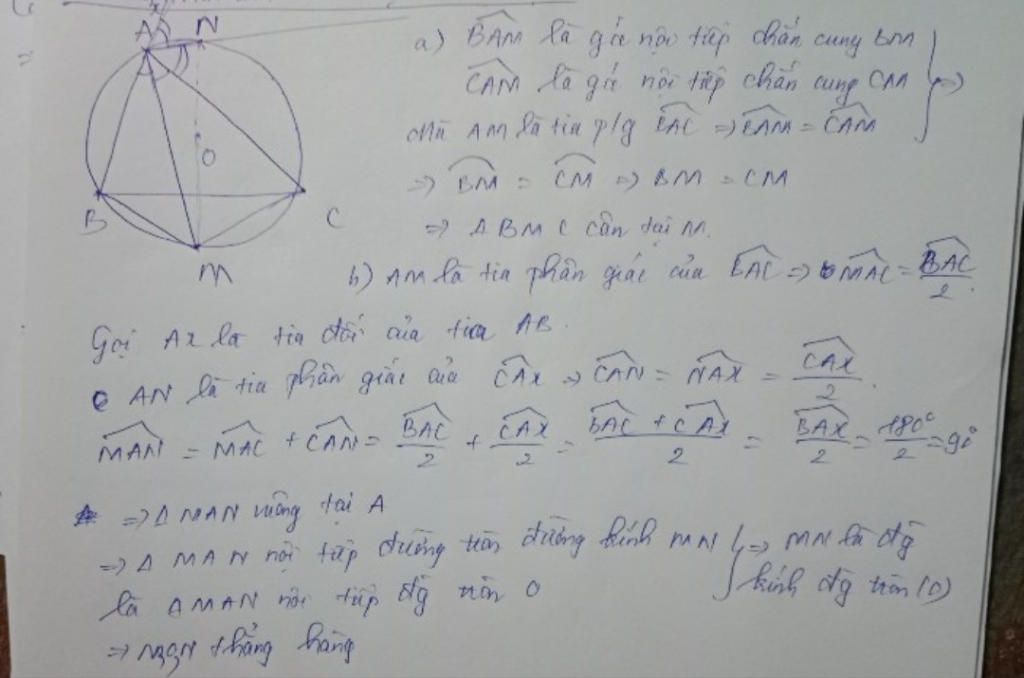 A N
O
B C
M
a) BAM là góc nội tiếp chắn cung BM
CAM là góc nội tiếp chắn cung CM } =>
Mà AM là tia p/g BAC => BAM = CAM
=> BM = CM => BM = CM
=> Δ BMC cân tại M.
b) AM là tia phân giác của BAC => MAC = BAC/2.
Gọi Ax là tia đối của tia AB.
AN là tia phân giác của CAx => CAN = NAx = CAx/2.
MAN = MAC + CAN = BAC/2 + CAx/2 = (BAC + CAx)/2 = BAx/2 = 180°/2 = 90
=> Δ MAN vuông tại A
=> Δ MAN nội tiếp đường tròn đường kính MN } => MN là đg
là Δ MAN nội tiếp đg tròn O kính đg tròn (O)
=> M,O,N thẳng hàng